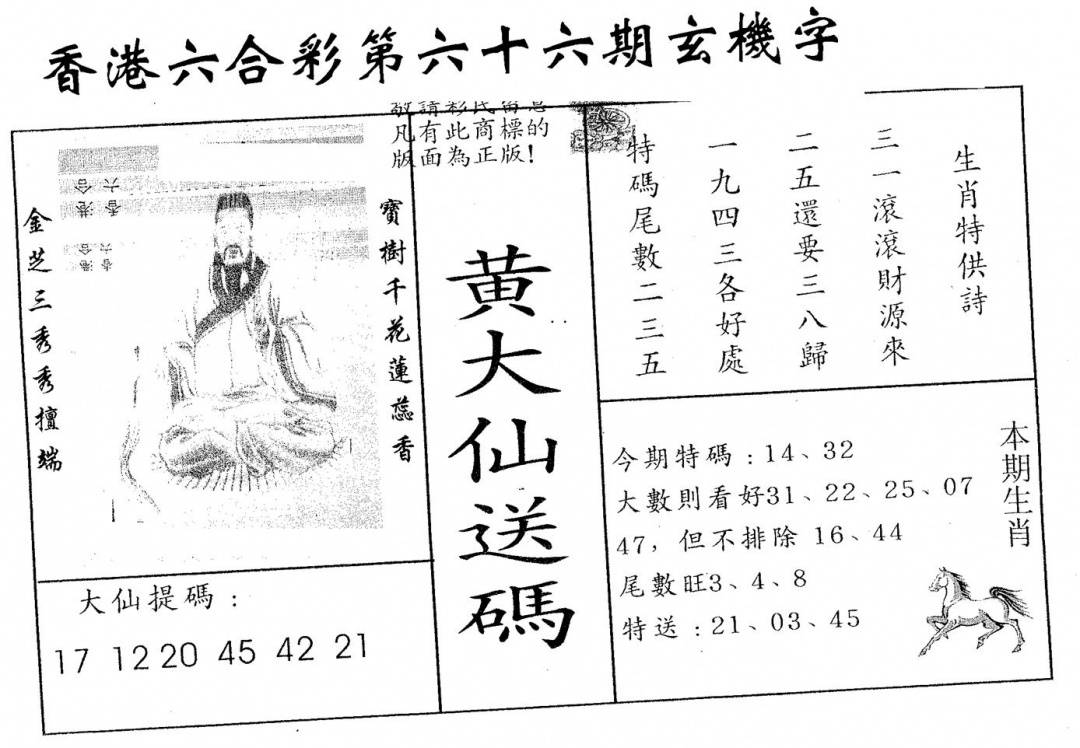 香港六合彩第六十六期玄機字
敬請彩民留意
凡有此商標的
版面為正版!
生肖特供詩
三一滾滾財源來
二五還要三八歸
一九四三各好處
特碼尾數二三五
寶樹千花蓮蕊香
金芝三秀秀擅端
黃大仙送碼
今期特碼:14、32
大數則看好31、22、25、07
47,但不排除 16、44
尾數旺3、4、8
特送:21、03、45
本期生肖
大仙提碼:
17 12 20 45 42 21